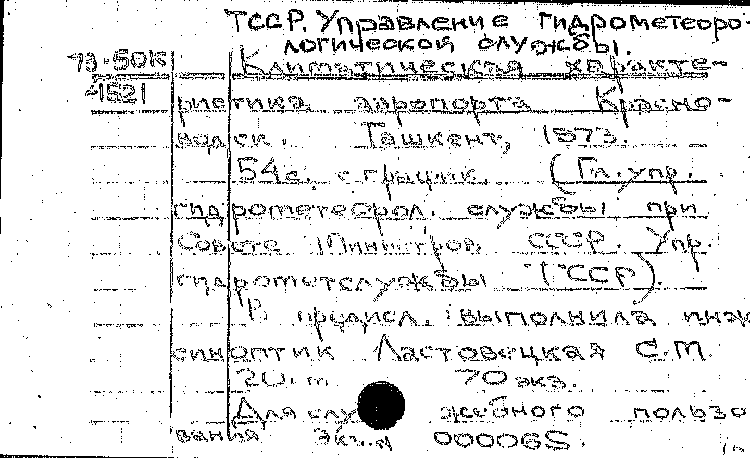 ТССР. Управление гидрометеоро-
логической службы.
73-50К
Климатическая характе-
ристика аэропорта Красно-
водск. Ташкент, 1973.
54с. с граф. (Гл. упр.
гидрометеорол. службы при
Совете Министров СССР. Упр.
гидрометслужбы ТССР).
В предисл.: выполнила инж
синоптик Ластовецкая С.М.
20 см 70 экз.
Для служебного пользо
вания Экз.№ 000065.